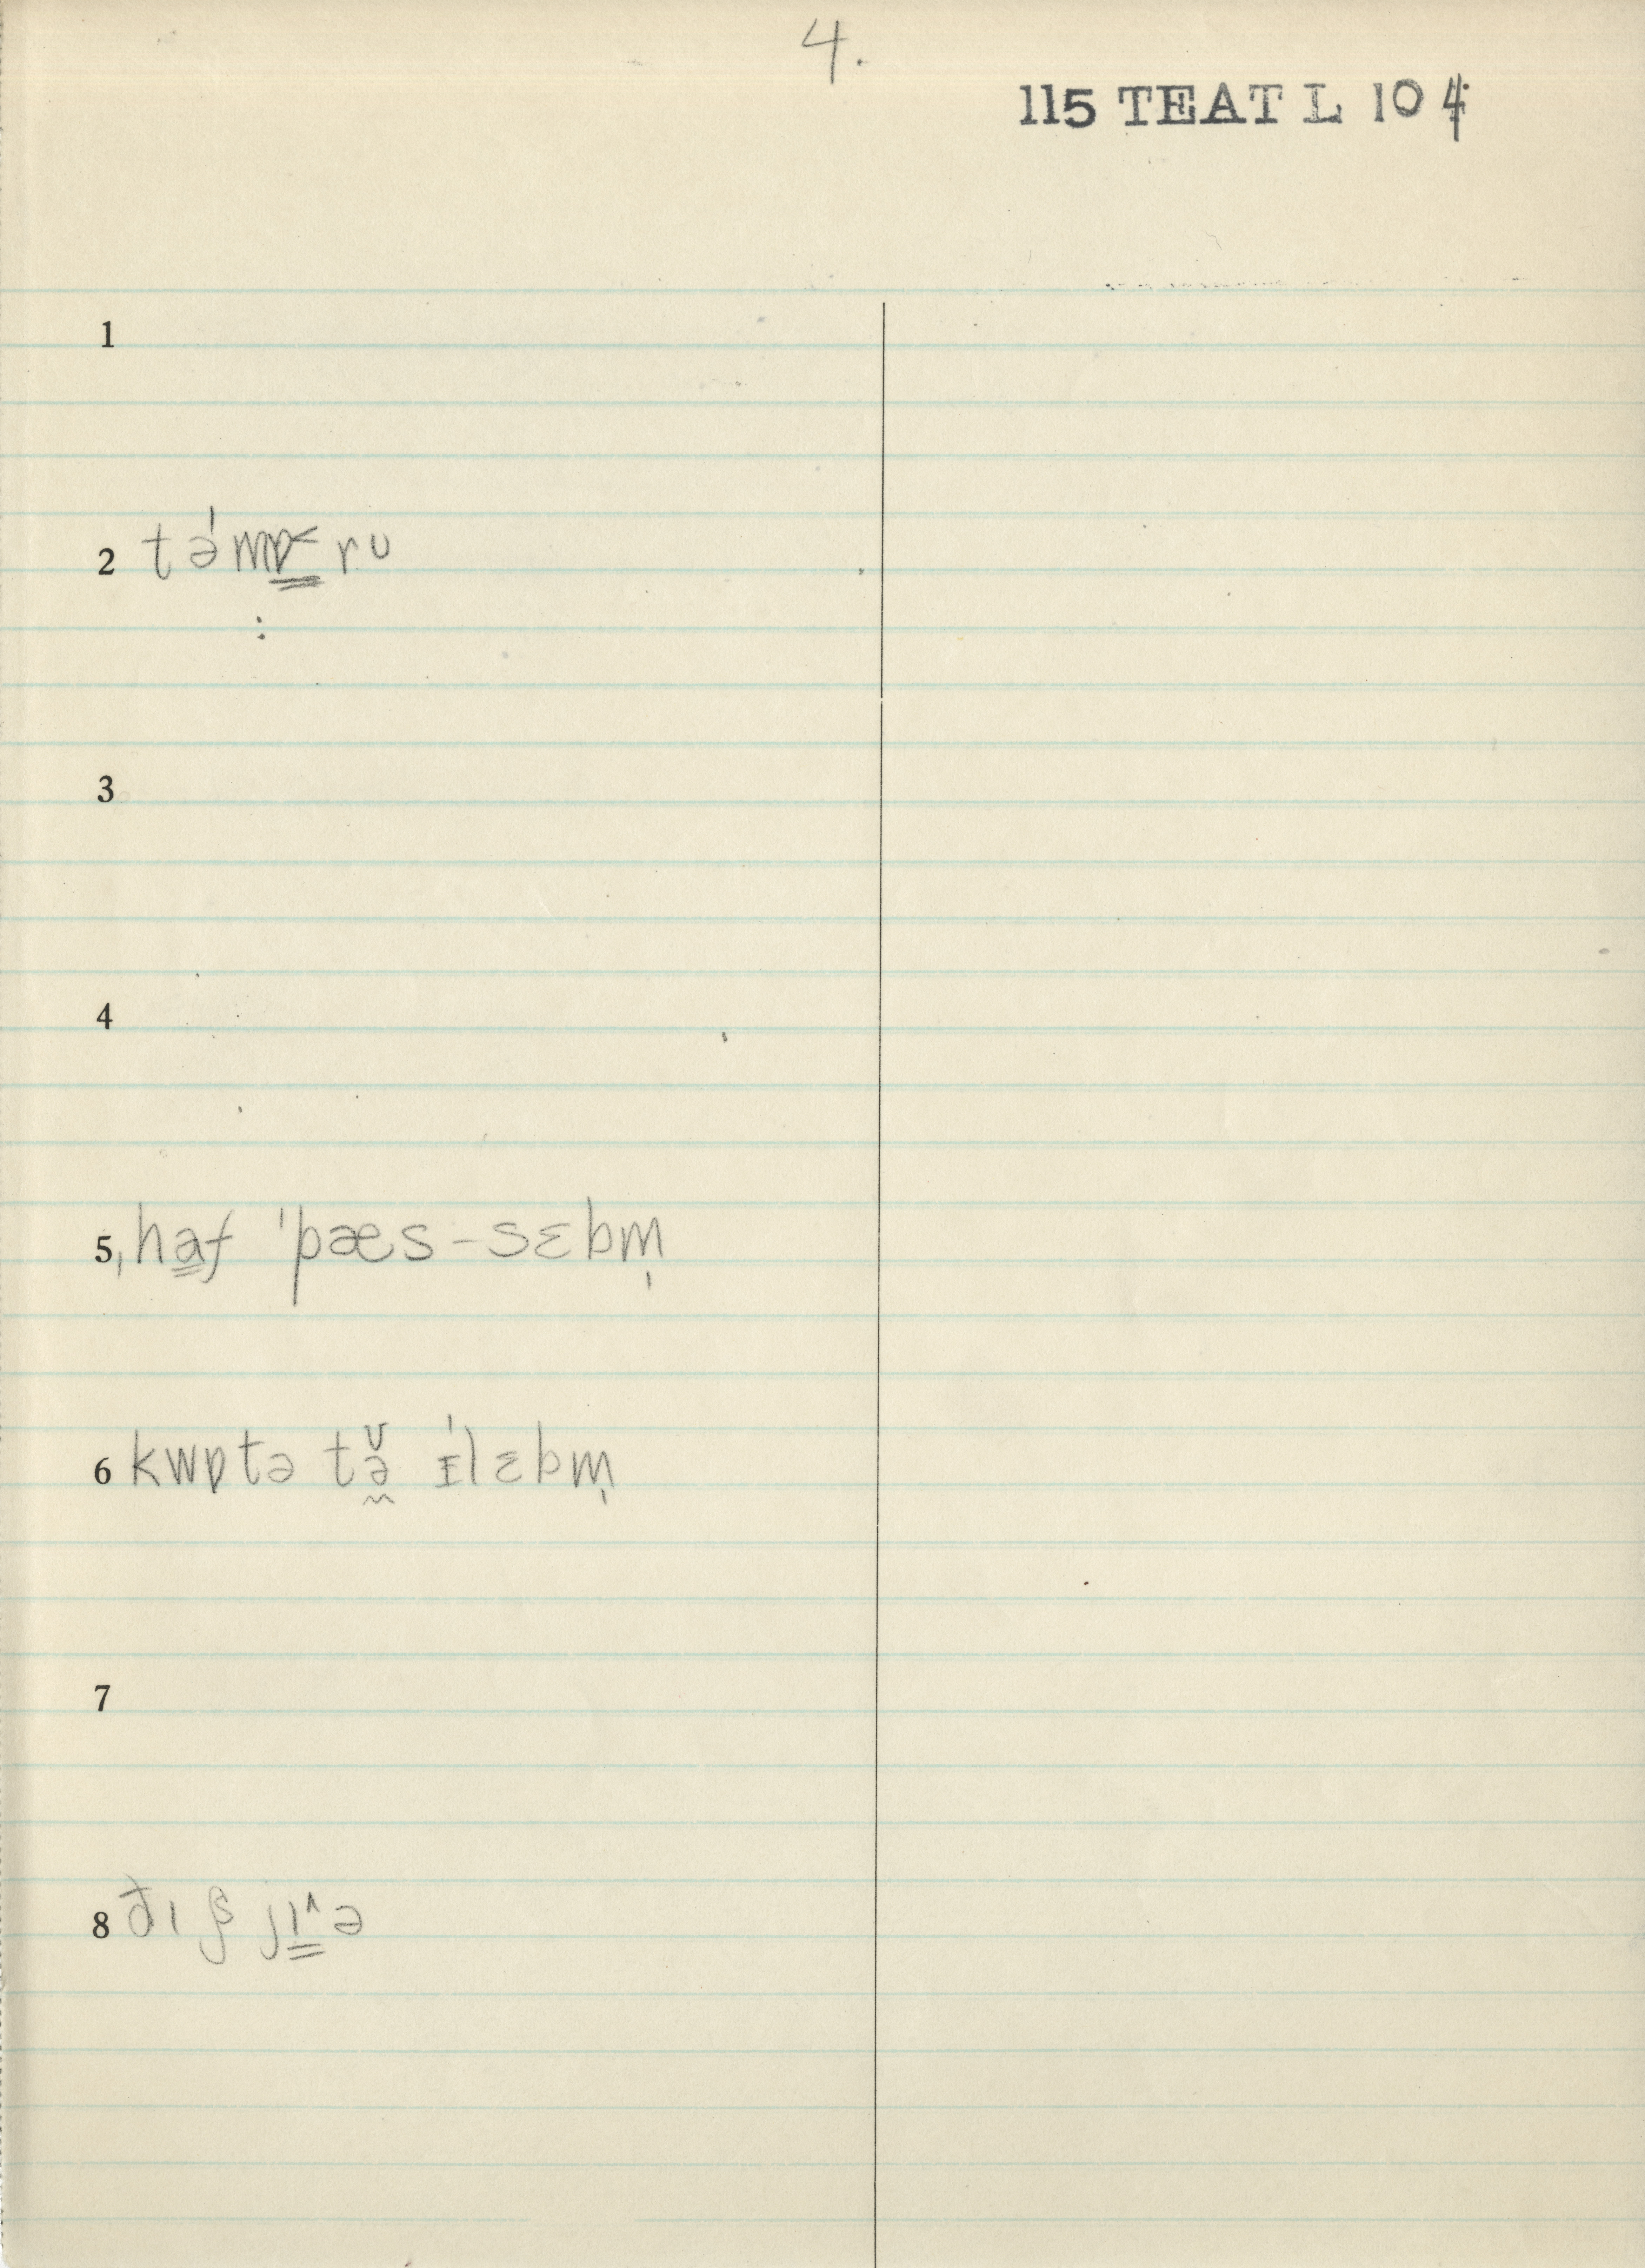 4.
115 TEAT L 104
1
2 tə́mɒ˂ru
3
4
5 haf ˈpæs-sɛbm̩
6 kwɒtə tə̬̆ ɪ́lɛbm̩
7
8 ðɪʃ jɪ˄ə